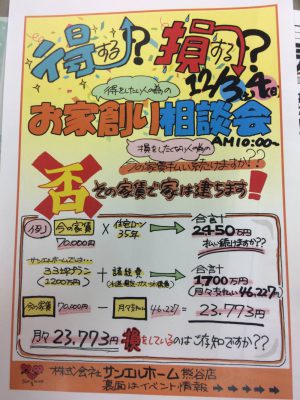 得する↑?損する↓?
12/3㊏4㊐
得をしたい人の為の
お家創り相談会
AM10:00~
損をしたくない人の為の
今の家賃払い続けますか??
否 その家賃で家は建ちます!
例 今の家賃 70,000円 × 住宅ローン 35年 → 合計 2450万円 払い続けますか??
サンエルホームでは…
33坪プラン (1200万円) + 諸経費 → 合計 1700万円 (月々支払い46,227円)
今の家賃 70,000円 − 月々支払 46,227円 = 23,773円
月々23,773円損をしているのはご存知ですか??
株式会社サンエルホーム熊谷店
裏面はイベント情報→→→→→